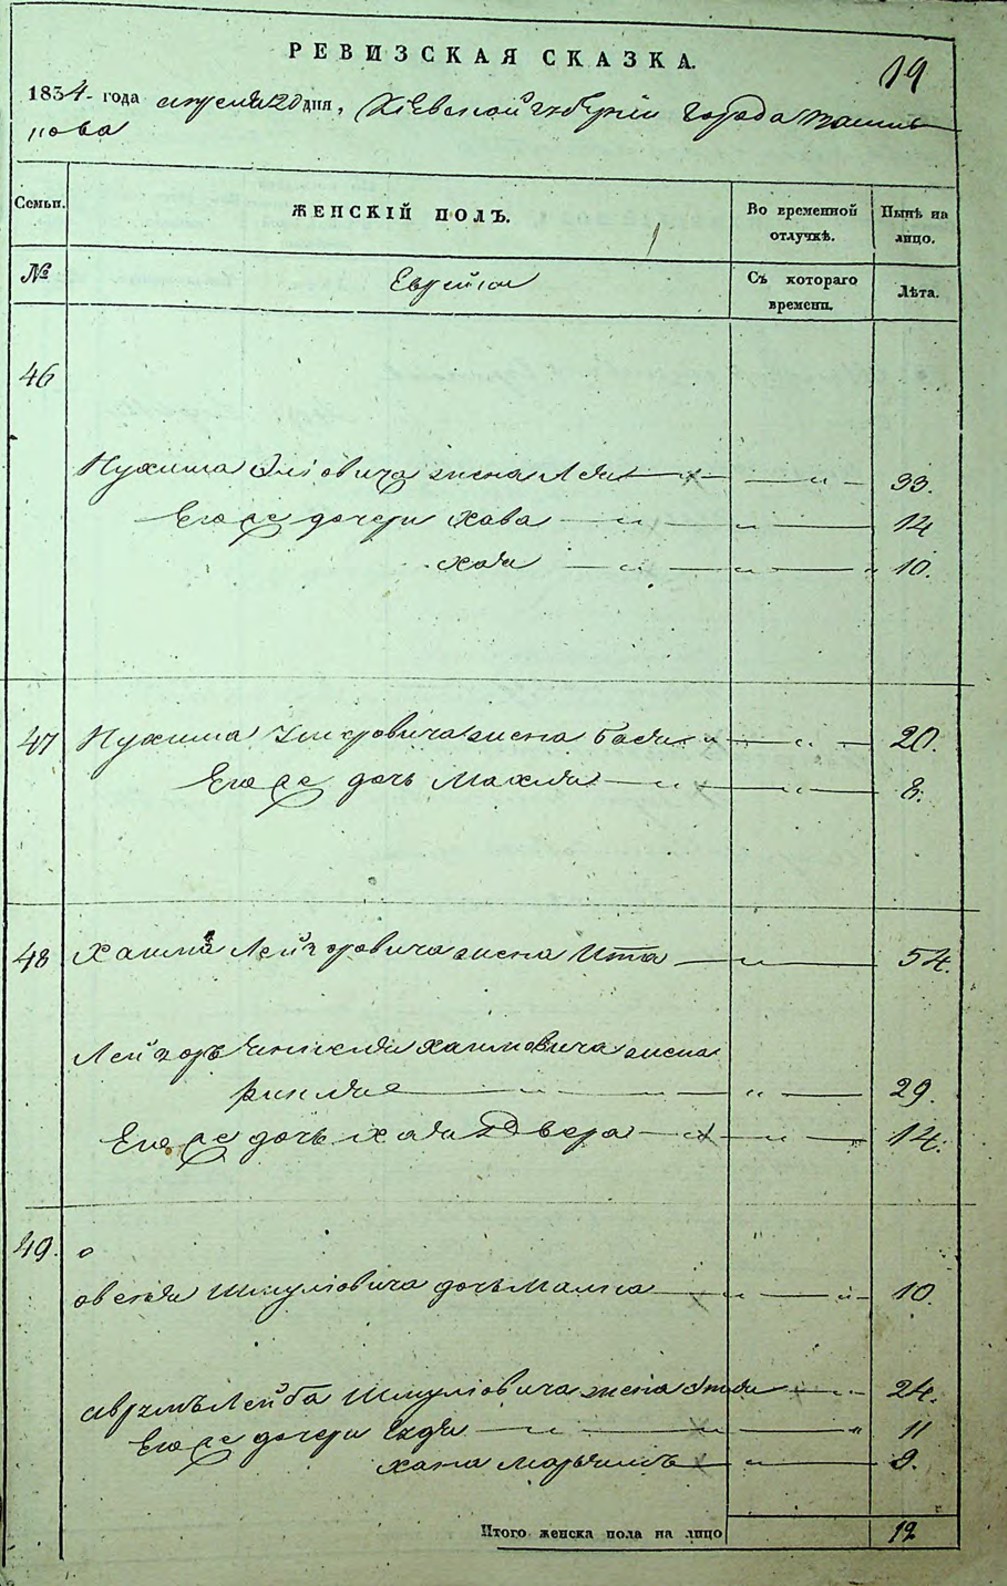 РЕВИЗСКАЯ СКАЗКА.
19
1834 года апреля 20 дня, Кіевской губерніи города
нова
Семьи. ЖЕНСКІЙ ПОЛЪ. Во временной отлучкѣ. Нынѣ на лицо.
№ Еврейки Съ котораго времени. Лѣта.
46
Нухима жена Лея 33.
Его же дочери Хава 14
Хая 10.
47 Нухима жена Бася 20.
Его же дочь Махля 8.
48 Хаима Лейзоровича жена Ита 54.
Лейзоръ Хаимовича жена
29.
Его же дочь Хая Двера 14.
49.
овсея Шмуліовича дочь Малка 10.
Лейба Шмуліовича жена 24.
Его же дочери 11
Хана 9.
Итого женска пола на лицо 12